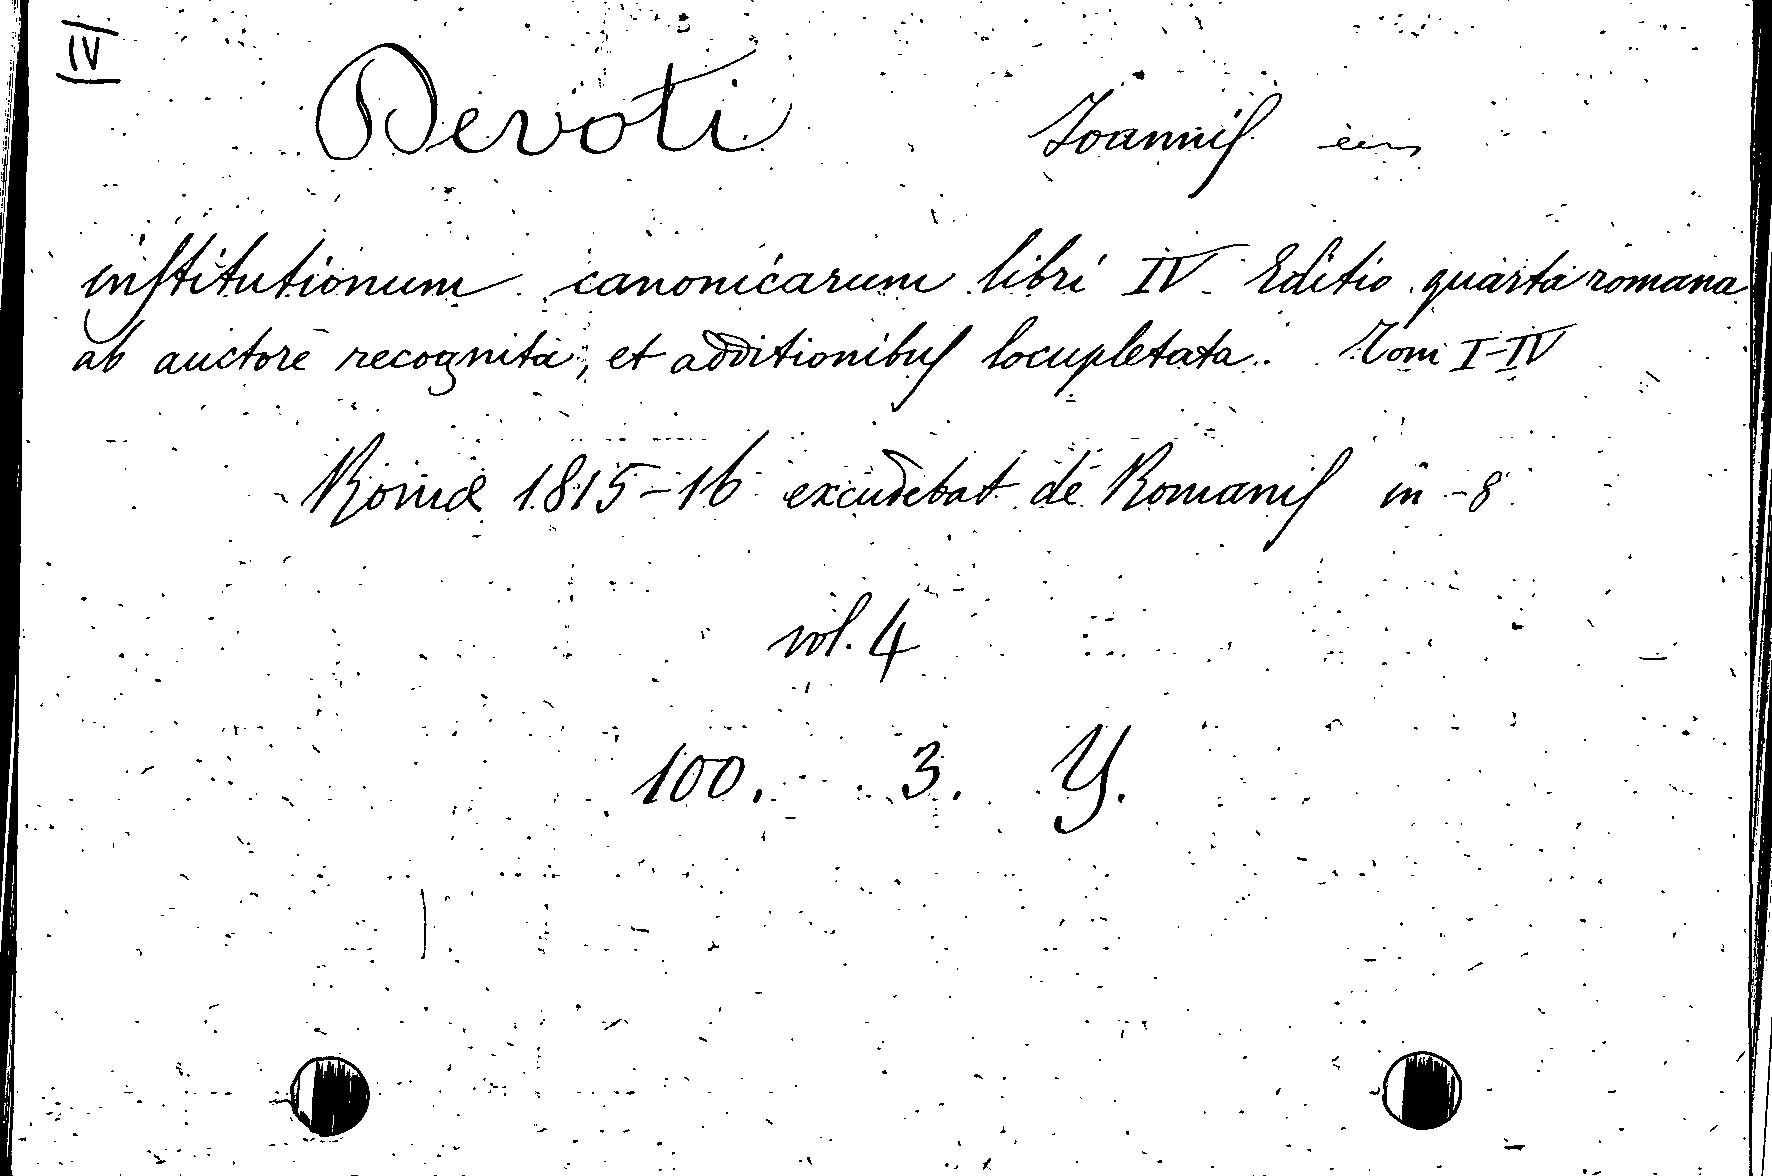 IV
Devoti Joannis
institutionum canonicarum libri IV. Editio quarta romana
ab auctore recognita, et additionibus locupletata. Tomi I-IV
Romæ 1815-16 excudebat de Romanis in -8
vol. 4
100. 3. Y.